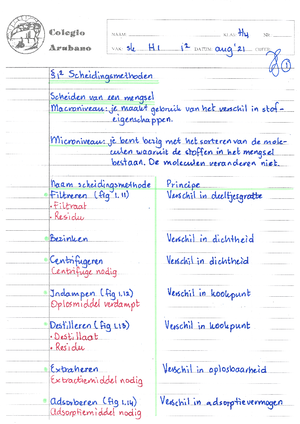 Colegio
Arubano
NAAM
KLAS H4
NR.
VAK sk H1
1e DATUM aug '21
CIJFER
1
§1.2 Scheidingsmethoden
Scheiden van een mengsel
Macroniveau: je maakt gebruik van het verschil in stof-
eigenschappen.
Microniveau: je bent bezig met het sorteren van de mole-
culen waaruit de stoffen in het mengsel
bestaan. De moleculen veranderen niet.
Naam scheidingsmethode Principe
Filtreren (fig 1.11) Verschil in deeltjesgrootte
• Filtraat
• Residu
Bezinken Verschil in dichtheid
Centrifugeren Verschil in dichtheid
Centrifuge nodig
Indampen (fig 1.12) Verschil in kookpunt
Oplosmiddel verdampt
Destilleren (fig 1.13) Verschil in kookpunt
• Destillaat
• Residu
Extraheren Verschil in oplosbaarheid
Extractiemiddel nodig
Adsorberen (fig 1.14) Verschil in adsorptievermogen
Adsorptiemiddel nodig